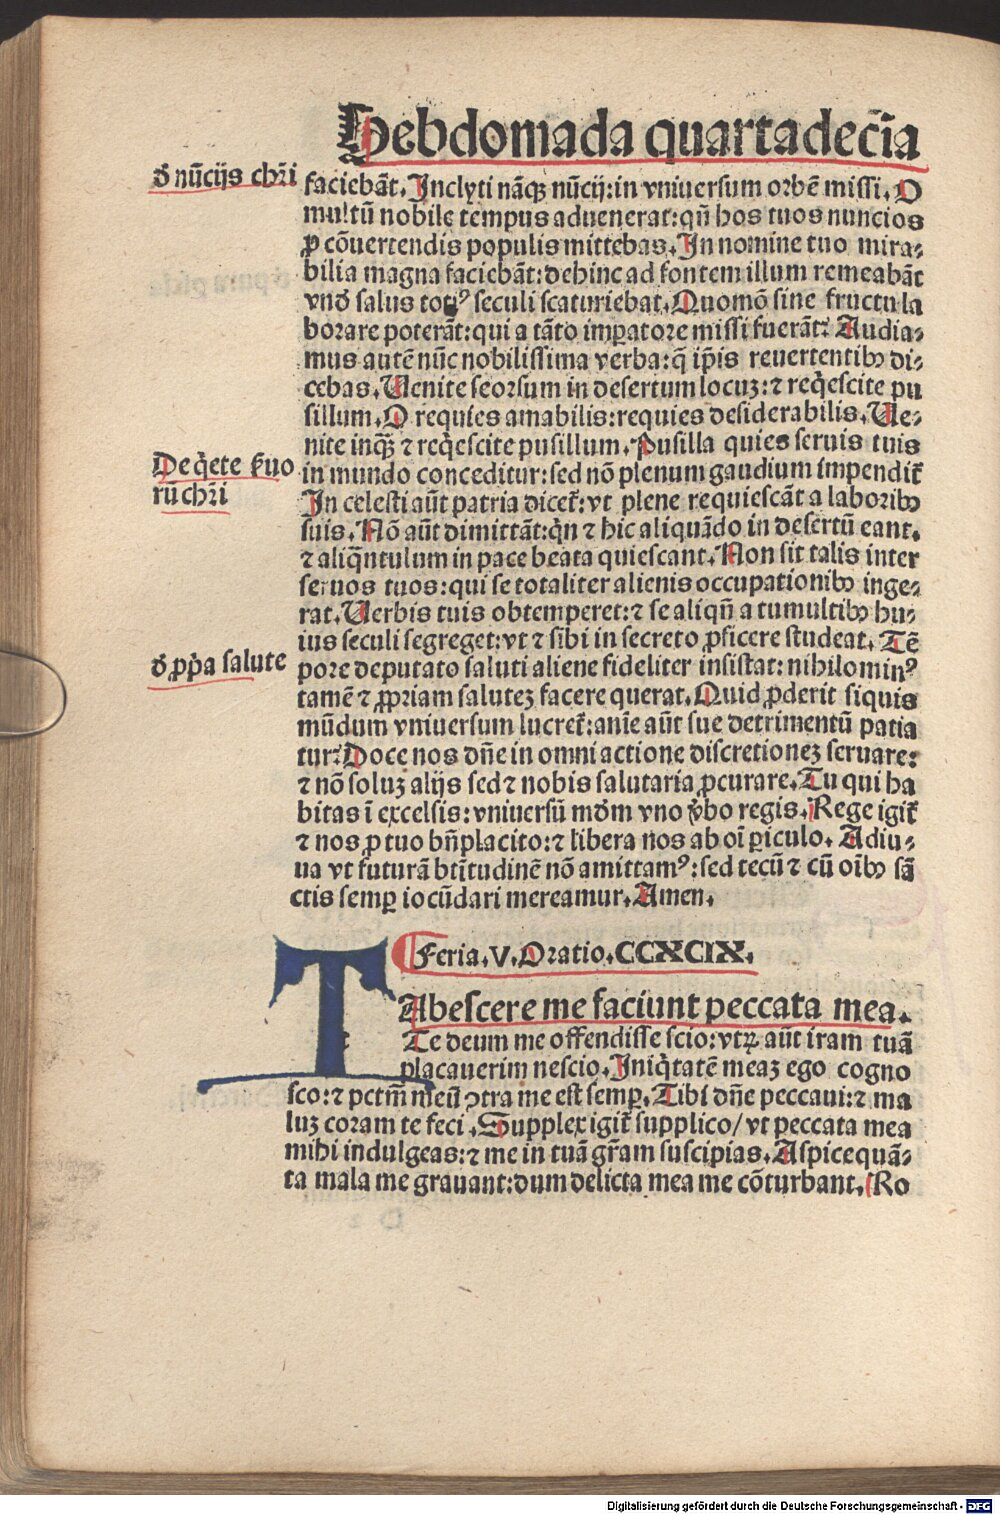 Hebdomada quartadecīa
đ nūcijs chr̄i
faciebāt. Inclyti nāqꝫ nūcij: in vniuersum orbē missi. O
multū nobile tempus aduenerat: qn̄ hos tuos nuncios
ꝓ cōuertendis populis mittebas. In nomine tuo mira⸗
bilia magna faciebāt: dehinc ad fontem illum remeabāt
vnđ salus totiꝰ seculi scaturiebat. Quomō sine fructu la
borare poterāt: qui a tāto imꝑatore missi fuerāt? Audia⸗
mus autē nūc nobilissima verba: q̄ ip̄is reuertentibꝫ di⸗
cebas. Uenite seorsum in desertum locuꝫ: ⁊ req̇escite pu
sillum. O requies amabilis: requies desiderabilis. Ue⸗
nite inq̄ꝫ ⁊ req̇escite pusillum. Pusilla quies seruis tuis
De q̇ete ẜuo
rū chr̄i
in mundo conceditur: sed nō plenum gaudium impendit᷑
In celesti aūt patria dicet᷑: vt plene requiescāt a laboribꝫ
suis. Nō aūt dimittāt: qⁱn ⁊ hic aliquādo in desertū eant.
⁊ aliq̄ntulum in pace beata quiescant. Non sit talis inter
seruos tuos: qui se totaliter alienis occupationibꝫ inge⸗
rat. Uerbis tuis obtemperet: ⁊ se aliqn̄ a tumultibꝫ hu⸗
ius seculi segreget: vt ⁊ sibi in secreto ꝓficere studeat. Tē
đ ꝓp̄a salute
pore deputato saluti aliene fideliter insistat: nihilominꝰ
tamē ⁊ ꝓpriam saluteꝫ facere querat. Quid ꝓderit siquis
mūdum vniuersum lucret᷑: anīe aūt sue detrimentū patia
tur? Doce nos dn̄e in omni actione discretioneꝫ seruare:
⁊ nō soluꝫ alijs sed ⁊ nobis salutaria ꝓcurare. Tu qui ha
bitas ī excelsis: vniuersū mđm vno v̄bo regis. Rege igit᷑
⁊ nos ꝓ tuo bn̄placito: ⁊ libera nos ab oī ꝑiculo. Adiu⸗
ua vt futurā btītudinē nō amittamꝰ: sed tecū ⁊ cū oībꝫ sā
ctis semꝑ iocūdari mereamur. Amen.
Feria. V. Oratio. CCXCIX.
TAbescere me faciunt peccata mea.
Te deum me offendisse scio: vtꝝ aūt iram tuā
placauerim nescio. Iniq̇tatē meaꝫ ego cogno
sco: ⁊ pctm̄ meū ↄtra me est semꝑ. Tibi dn̄e peccaui: ⁊ ma
luꝫ coram te feci. Supplex igit᷑ supplico/ vt peccata mea
mihi indulgeas: ⁊ me in tuā gr̄am suscipias. Aspice quā⸗
ta mala me grauant: dum delicta mea me cōturbant. Ro
Digitalisierung gefördert durch die Deutsche Forschungsgemeinschaft - DFG